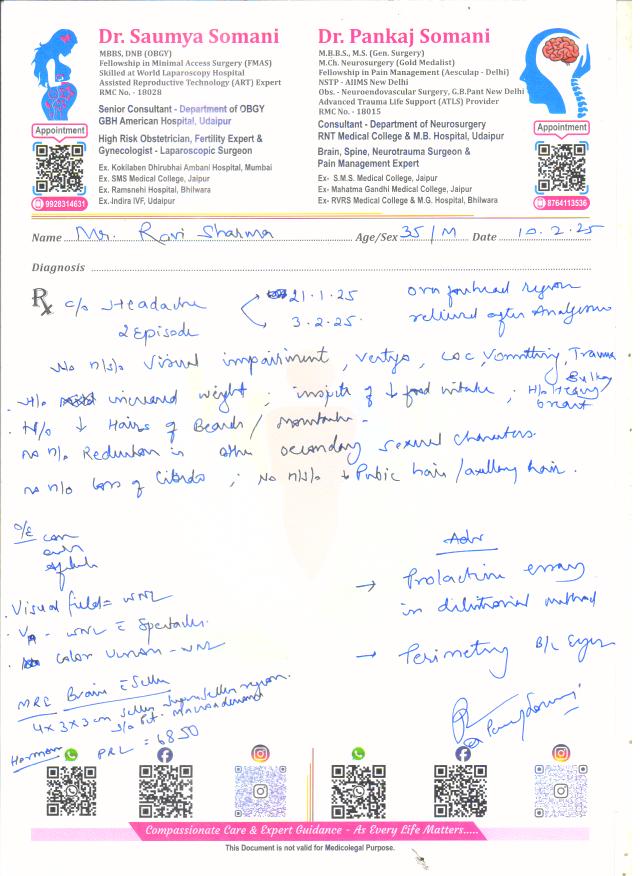 Dr. Saumya Somani
MBBS, DNB (OBGY)
Fellowship in Minimal Access Surgery (FMAS)
Skilled at World Laparoscopy Hospital
Assisted Reproductive Technology (ART) Expert
RMC No. - 18028
Senior Consultant - Department of OBGY
GBH American Hospital, Udaipur
High Risk Obstetrician, Fertility Expert &
Gynecologist - Laparoscopic Surgeon
Ex. Kokilaben Dhirubhai Ambani Hospital, Mumbai
Ex. SMS Medical College, Jaipur
Ex. Ramsnehi Hospital, Bhilwara
Ex.-Indira IVF, Udaipur
Appointment
9928314631
Dr. Pankaj Somani
M.B.B.S., M.S. (Gen. Surgery)
M.Ch. Neurosurgery (Gold Medalist)
Fellowship in Pain Management (Aesculap - Delhi)
NSTP - AIIMS New Delhi
Obs. - Neuroendovascular Surgery, G.B.Pant New Delhi
Advanced Trauma Life Support (ATLS) Provider
RMC No. - 18015
Consultant - Department of Neurosurgery
RNT Medical College & M.B. Hospital, Udaipur
Brain, Spine, Neurotrauma Surgeon &
Pain Management Expert
Ex- S.M.S. Medical College, Jaipur
Ex- Mahatma Gandhi Medical College, Jaipur
Ex- RVRS Medical College & M.G. Hospital, Bhilwara
Appointment
8764113536
Name Mr. Ravi Sharma Age/Sex 35/M Date 10.2.25
Diagnosis
Rx c/o Headache 21.1.25 over forehead region
2 Episode 3.2.25. relieved after Analgesics
No n/s/o Visual impairment, vertigo, LOC, Vomitting, Trauma
H/o increased weight; inspite of ↓ food intake; H/o Heavy/Bulky breast
H/o ↓ Hairs of Beards/ moustache -
no h/o Reduction in other secondary sexual characters.
no h/o loss of Libido; No h/o ↓ Pubic hair/axillary hair.
O/E con
Adv
→ Prolactine essay
in dilutional method
→ Perimetry B/L Eyes
Visual field = WNL
VA - WNL c̄ Spectacles
Color Vision - WNL
MRI Brain c̄ Sella
4 x 3 x 3 cm sellar suprasellar region.
s/o Pit. Macroadenoma
Hormon PRL = 6850
Compassionate Care & Expert Guidance - As Every Life Matters.....
This Document is not valid for Medicolegal Purpose.